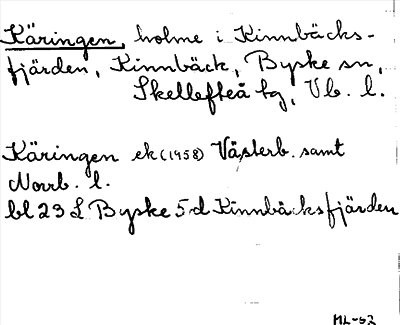 Käringen, holme i Kinnbäcks-
fjärden, Kinnbäck, Byske sn,
Skellefteå tg, Vb. l.
Käringen ek (1958) Västerb. samt
Norrb. l.
bl 23 L Byske 5 d Kinnbäcksfjärden
ML-62